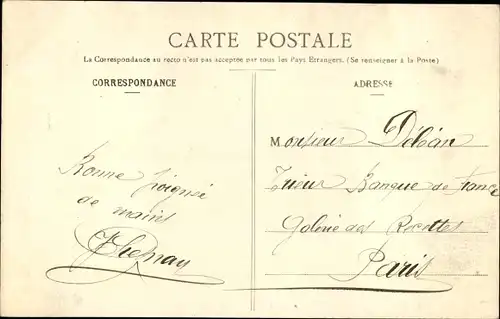 CARTE POSTALE
La Correspondance au recto n'est pas acceptée par tous les Pays Etrangers. (Se renseigner à la Poste)
CORRESPONDANCE
ADRESSE
Monsieur Déban
Trieur Banque de France
Galerie des Recettes
Paris
Bonne poignée
de mains